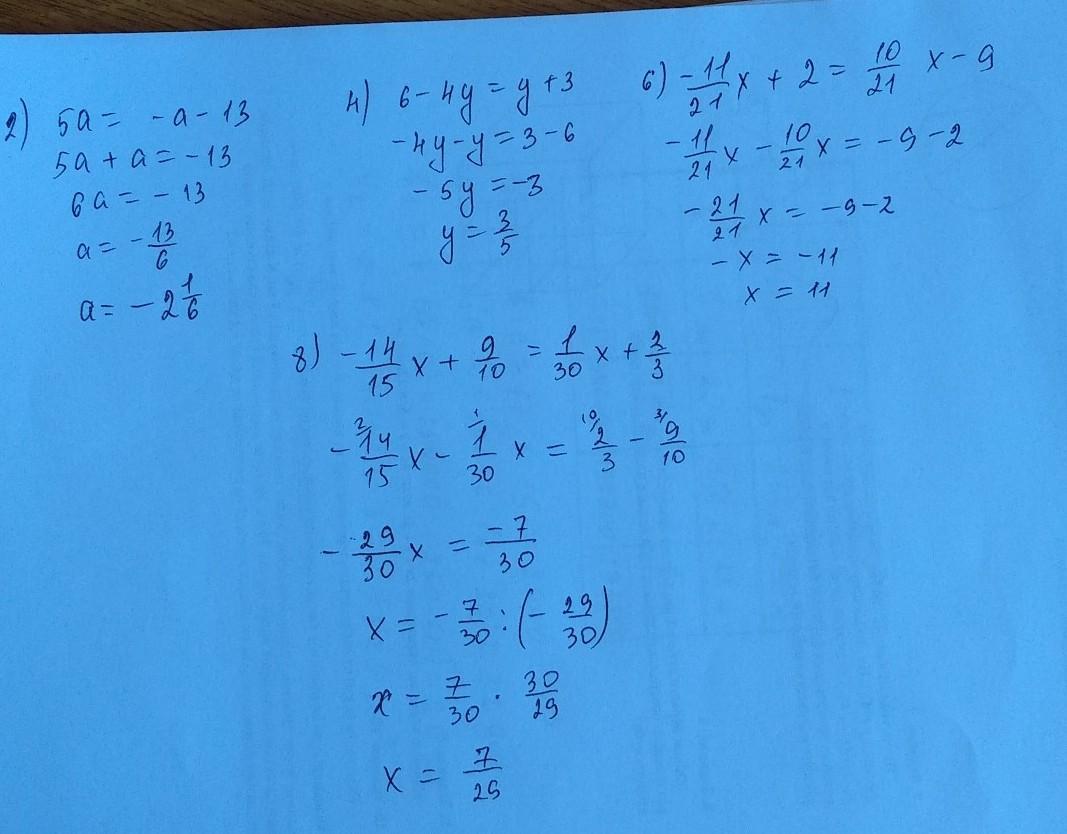 2) 5a = -a - 13
5a + a = -13
6a = -13
a = -13/6
a = -2 1/6
4) 6 - 4y = y + 3
-4y - y = 3 - 6
-5y = -3
y = 3/5
6) -11/21 x + 2 = 10/21 x - 9
-11/21 x - 10/21 x = -9 - 2
-21/21 x = -9 - 2
-x = -11
x = 11
8) -14/15 x + 9/10 = 1/30 x + 2/3
2/ 1/ 10/ 3/
-14/15 x - 1/30 x = 2/3 - 9/10
-29/30 x = -7/30
x = -7/30 : (-29/30)
x = 7/30 · 30/29
x = 7/29